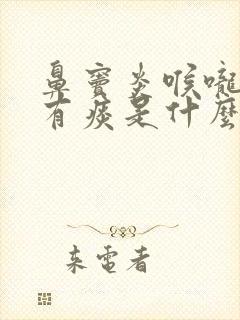 鼻竇炎喉嚨
有痰是什麼
来電者